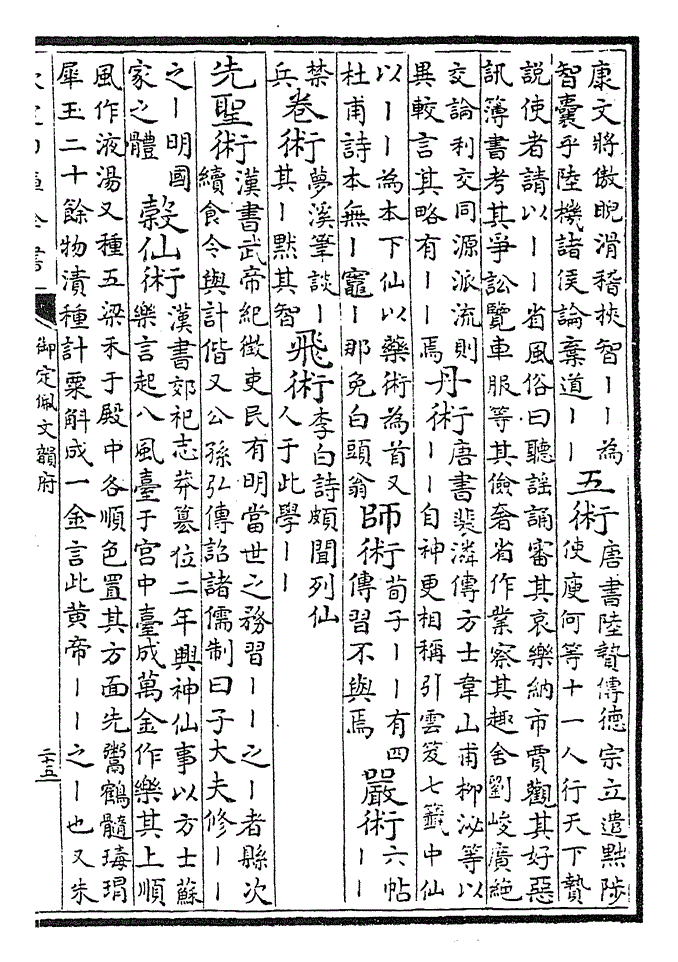 康文將傲睨滑稽挾智丨丨為
智囊乎陸機諸侯論棄道丨丨
五術
唐書陸贄傳德宗立遣黜陟
使庾何等十一人行天下贄
說使者請以丨丨省風俗曰聽謡誦審其哀樂納市賈觀其好惡
訊簿書考其爭訟覽車服等其儉奢省作業察其趣舍劉峻廣絶
交論利交同源派流則
異較言其略有丨丨焉
丹術
唐書裴潾傳方士韋山甫柳泌等以
丨丨自神更相稱引雲笈七籤中仙
以丨丨為本下仙以藥術為首又
杜甫詩本無丨竈丨那免白頭翁
師術
荀子丨丨有四
傳習不與焉
嚴術
六帖
丨丨
禁
兵
卷術
夢溪筆談丨
其丨黙其智
飛術
李白詩頗聞列仙
人于此學丨丨
先聖術
漢書武帝紀徵吏民有明當世之務習丨丨之丨者縣次
續食令與計偕又公孫弘傳詔諸儒制曰子大夫修丨丨
之丨明國
家之體
榖仙術
漢書郊祀志莽簒位二年興神仙事以方士蘇
樂言起八風臺于宫中臺成萬金作樂其上順
風作液湯又種五梁禾于殿中各順色置其方面先鬻鶴髓瑇瑁
犀玉二十餘物漬種計粟斛成一金言此黄帝丨丨之丨也又朱
御定佩文韻府
二十五